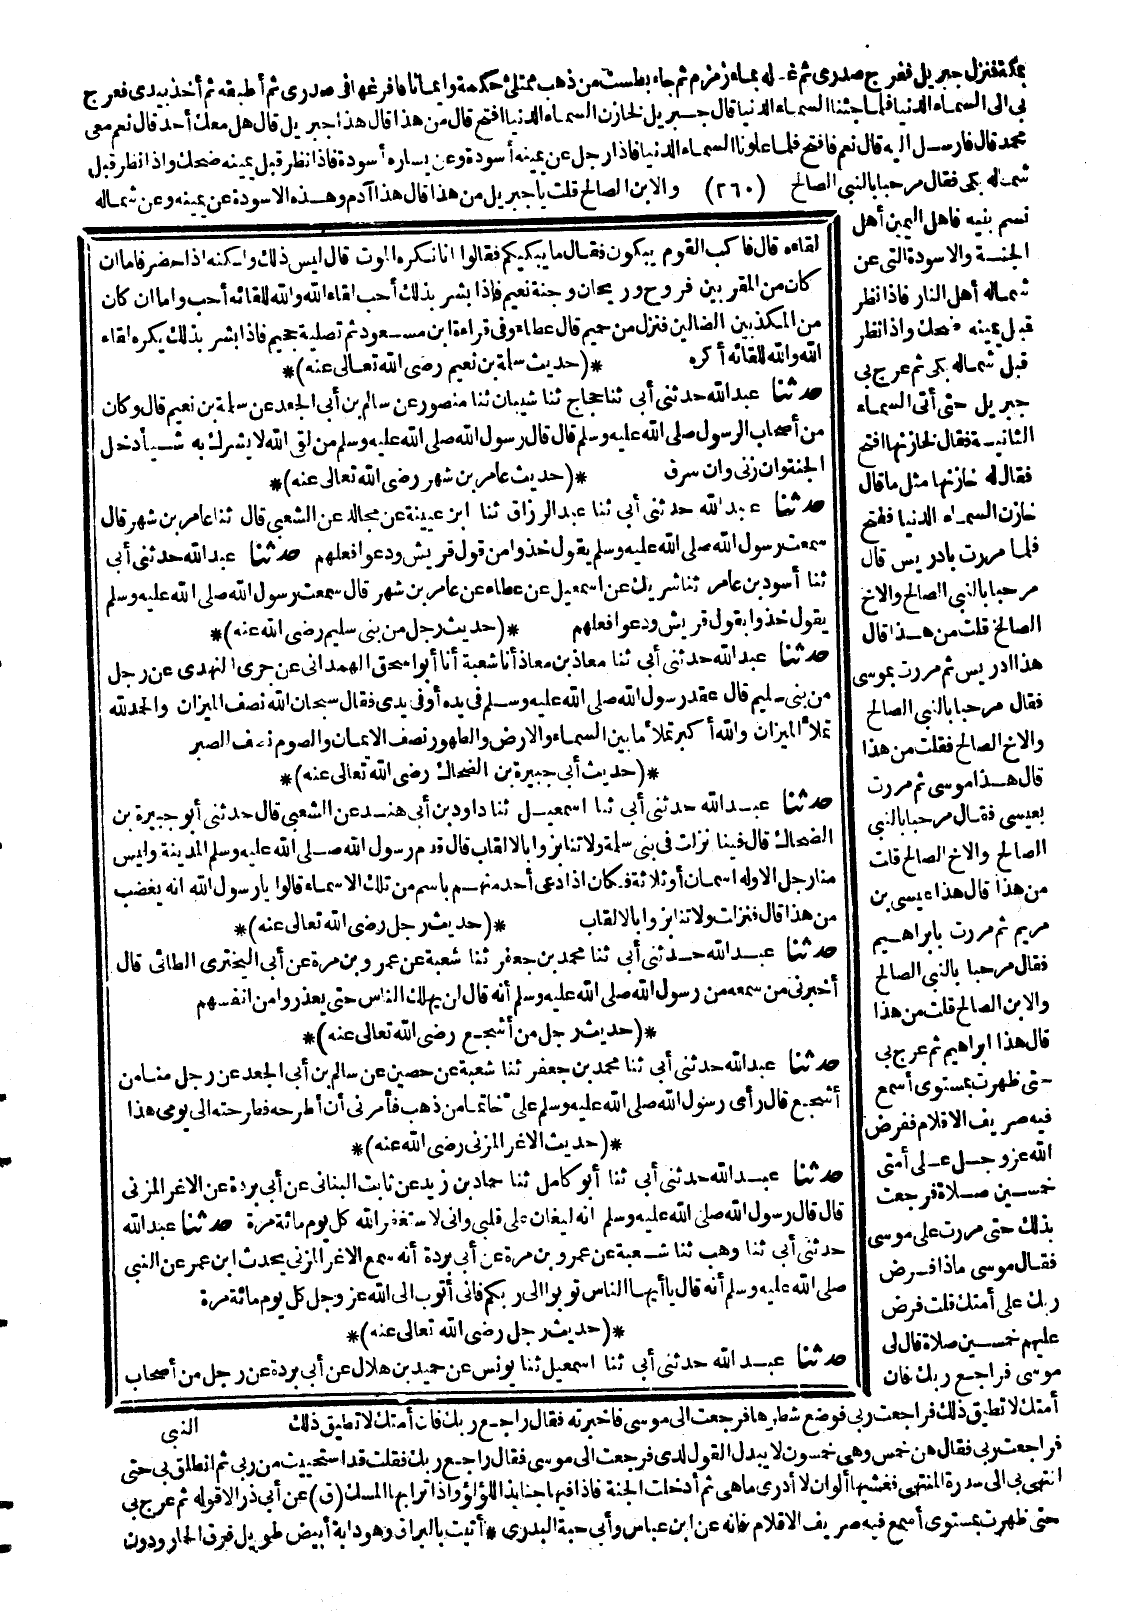 بمكة فنزل جبريل ففرج صدري ثم غسله بماء زمزم ثم جاء بطست من ذهب ممتلئ حكمة وايمانا فافرغها في صدري ثم أطبقه ثم أخذ بيدي فعرج
بي الى السماء الدنيا فلما جئنا السماء الدنيا قال جبريل لخازن السماء الدنيا افتح قال من هذا قال هذا جبريل قال هل معك أحد قال نعم معي
محمد قال فارسل اليه قال نعم فافتح فلما علونا السماء الدنيا فاذا رجل عن يمينه أسودة وعن يساره أسودة فاذا نظر قبل يمينه ضحك واذا نظر قبل
شماله بكى فقال مرحبا بالنبي الصالح (٢٦٠) والابن الصالح قلت يا جبريل من هذا قال هذا آدم وهذه الاسودة عن يمينه وعن شماله
نسم بنيه فاهل اليمين أهل
الجنة والاسودة التي عن
شماله أهل النار فاذا نظر
قبل يمينه ضحك واذا نظر
قبل شماله بكى ثم عرج بي
جبريل حتى أتى السماء
الثانية فقال لخازنها افتح
فقال له خازنها مثل ما قال
خازن السماء الدنيا ففتح
فلما مررت بادريس قال
مرحبا بالنبي الصالح والاخ
الصالح قلت من هذا قال
هذا ادريس ثم مررت بموسى
فقال مرحبا بالنبي الصالح
والاخ الصالح فقلت من هذا
قال هذا موسى ثم مررت
بعيسى فقال مرحبا بالنبي
الصالح والاخ الصالح قلت
من هذا قال هذا عيسى بن
مريم ثم مررت بابراهيم
فقال مرحبا بالنبي الصالح
والابن الصالح قلت من هذا
قال هذا ابراهيم ثم عرج بي
حتى ظهرت بمستوى أسمع
فيه صريف الاقلام ففرض
الله عز وجل على أمتي
خمسين صلاة فرجعت
بذلك حتى مررت على موسى
فقال موسى ماذا فرض
ربك على أمتك قلت فرض
عليهم خمسين صلاة قال لي
موسى فراجع ربك فان
لقاءه قال فاكب القوم يبكون فقال ما يبكيكم فقالوا انا نكره الموت قال ليس ذلك ولكنه اذا حضر فاما ان
كان من المقربين فروح وريحان وجنة نعيم فاذا بشر بذلك أحب لقاء الله والله للقائه أحب واما ان كان
من المكذبين الضالين فنزل من حميم قال عطاء وفي قراءة ابن مسعود ثم تصلية جحيم فاذا بشر بذلك يكره لقاء
الله والله للقائه أكره *(حديث سلمة بن نعيم رضى الله تعالى عنه)*
حدثنا عبد الله حدثني أبي ثنا حجاج ثنا شيبان ثنا منصور عن سالم بن أبي الجعد عن سلمة بن نعيم قال وكان
من أصحاب الرسول صلى الله عليه وسلم قال قال رسول الله صلى الله عليه وسلم من لقى الله لا يشرك به شيأ دخل
الجنة وان زنى وان سرق *(حديث عامر بن شهر رضى الله تعالى عنه)*
حدثنا عبد الله حدثني أبي ثنا عبد الرزاق ثنا ابن عيينة عن مجالد عن الشعبي قال ثنا عامر بن شهر قال
سمعت رسول الله صلى الله عليه وسلم يقول خذوا من قول قريش ودعوا فعلهم حدثنا عبد الله حدثني أبي
ثنا أسود بن عامر ثنا شريك عن اسمعيل عن عطاء عن عامر بن شهر قال سمعت رسول الله صلى الله عليه وسلم
يقول خذوا بقول قريش ودعوا فعلهم *(حديث رجل من بني سليم رضى الله عنه)*
حدثنا عبد الله حدثني أبي ثنا معاذ بن معاذ أنا شعبة أنا أبو اسحق الهمداني عن جرى النهدى عن رجل
من بني سليم قال عقد رسول الله صلى الله عليه وسلم في يده أو في يدى فقال سبحان الله نصف الميزان والحمد لله
تملأ الميزان والله أكبر تملأ ما بين السماء والارض والطهور نصف الايمان والصوم نصف الصبر
*(حديث أبي جبيرة بن الضحاك رضى الله تعالى عنه)*
حدثنا عبد الله حدثني أبي ثنا اسمعيل ثنا داود بن أبي هند عن الشعبي قال حدثني أبو جبيرة بن
الضحاك قال فينا نزلت في بني سلمة ولا تنابزوا بالالقاب قال قدم رسول الله صلى الله عليه وسلم المدينة وليس
منا رجل الا وله اسمان أو ثلاثة فكان اذا دعى أحد منهم باسم من تلك الاسماء قالوا يا رسول الله انه يغضب
من هذا قال فنزلت ولا تنابزوا بالالقاب *(حديث رجل رضى الله تعالى عنه)*
حدثنا عبد الله حدثني أبي ثنا محمد بن جعفر ثنا شعبة عن عمرو بن مرة عن أبي البخترى الطائى قال
أخبرني من سمعه من رسول الله صلى الله عليه وسلم أنه قال لن يهلك الناس حتى يعذروا من انفسهم
*(حديث رجل من أشجع رضى الله تعالى عنه)*
حدثنا عبد الله حدثني أبي ثنا محمد بن جعفر ثنا شعبة عن حصين عن سالم بن أبي الجعد عن رجل منا من
أشجع قال رأى رسول الله صلى الله عليه وسلم على خاتما من ذهب فأمرني أن أطرحه فطرحته الى يومى هذا
*(حديث الاغر المزني رضى الله عنه)*
حدثنا عبد الله حدثني أبي ثنا أبو كامل ثنا حماد بن زيد عن ثابت البناني عن أبي بردة عن الاغر المزني
قال قال رسول الله صلى الله عليه وسلم انه ليغان على قلبي وانى لاستغفر الله كل يوم مائة مرة حدثنا عبد الله
حدثني أبي ثنا وهب ثنا شعبة عن عمرو بن مرة عن أبي بردة أنه سمع الاغر المزني يحدث ابن عمر عن النبي
صلى الله عليه وسلم أنه قال يا أيها الناس توبوا الى ربكم فانى أتوب الى الله عز وجل كل يوم مائة مرة
*(حديث رجل رضى الله تعالى عنه)*
حدثنا عبد الله حدثني أبي ثنا اسمعيل ثنا يونس عن حميد بن هلال عن أبي بردة عن رجل من أصحاب
النبي
أمتك لا تطيق ذلك فراجعت ربي فوضع شطرها فرجعت الى موسى فاخبرته فقال راجع ربك فان أمتك لا تطيق ذلك
فراجعت ربي فقال هن خمس وهي خمسون لا يبدل القول لدى فرجعت الى موسى فقال راجع ربك فقلت قد استحييت من ربي ثم انطلق بي حتى
انتهى بي الى سدرة المنتهى فغشيها ألوان لا أدري ما هي ثم أدخلت الجنة فاذا فيها جنابذ اللؤلؤ واذا ترابها المسك (ق) عن أبي ذر الا قوله ثم عرج بي
حتى ظهرت بمستوى أسمع فيه صريف الاقلام فانه عن ابن عباس وأبي حبة البدرى * أتيت بالبراق وهو دابة أبيض طويل فوق الحمار ودون